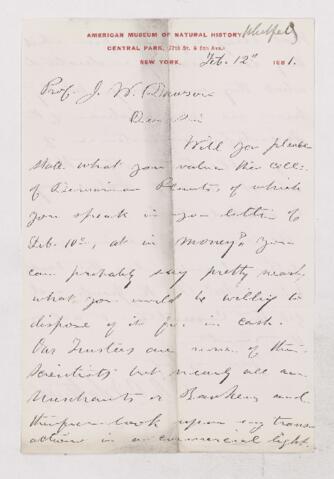 AMERICAN MUSEUM OF NATURAL HISTORY
CENTRAL PARK, (77th St. & 8th Ave.)
NEW YORK, Feb. 12th 1881.
Prof. J. W. Dawson
Dear Sir
Will you please
state what you value the coll.
of Devonian Plants of which
you speak in your letter of
Feb. 10th, at in money? You
can probably say pretty nearly
what you would be willing to
dispose of it for in cash.
Our Trustees are none of them
Scientists but nearly all are
Merchants or Bankers and
therefore look upon any trans-
actions in a commercial light.